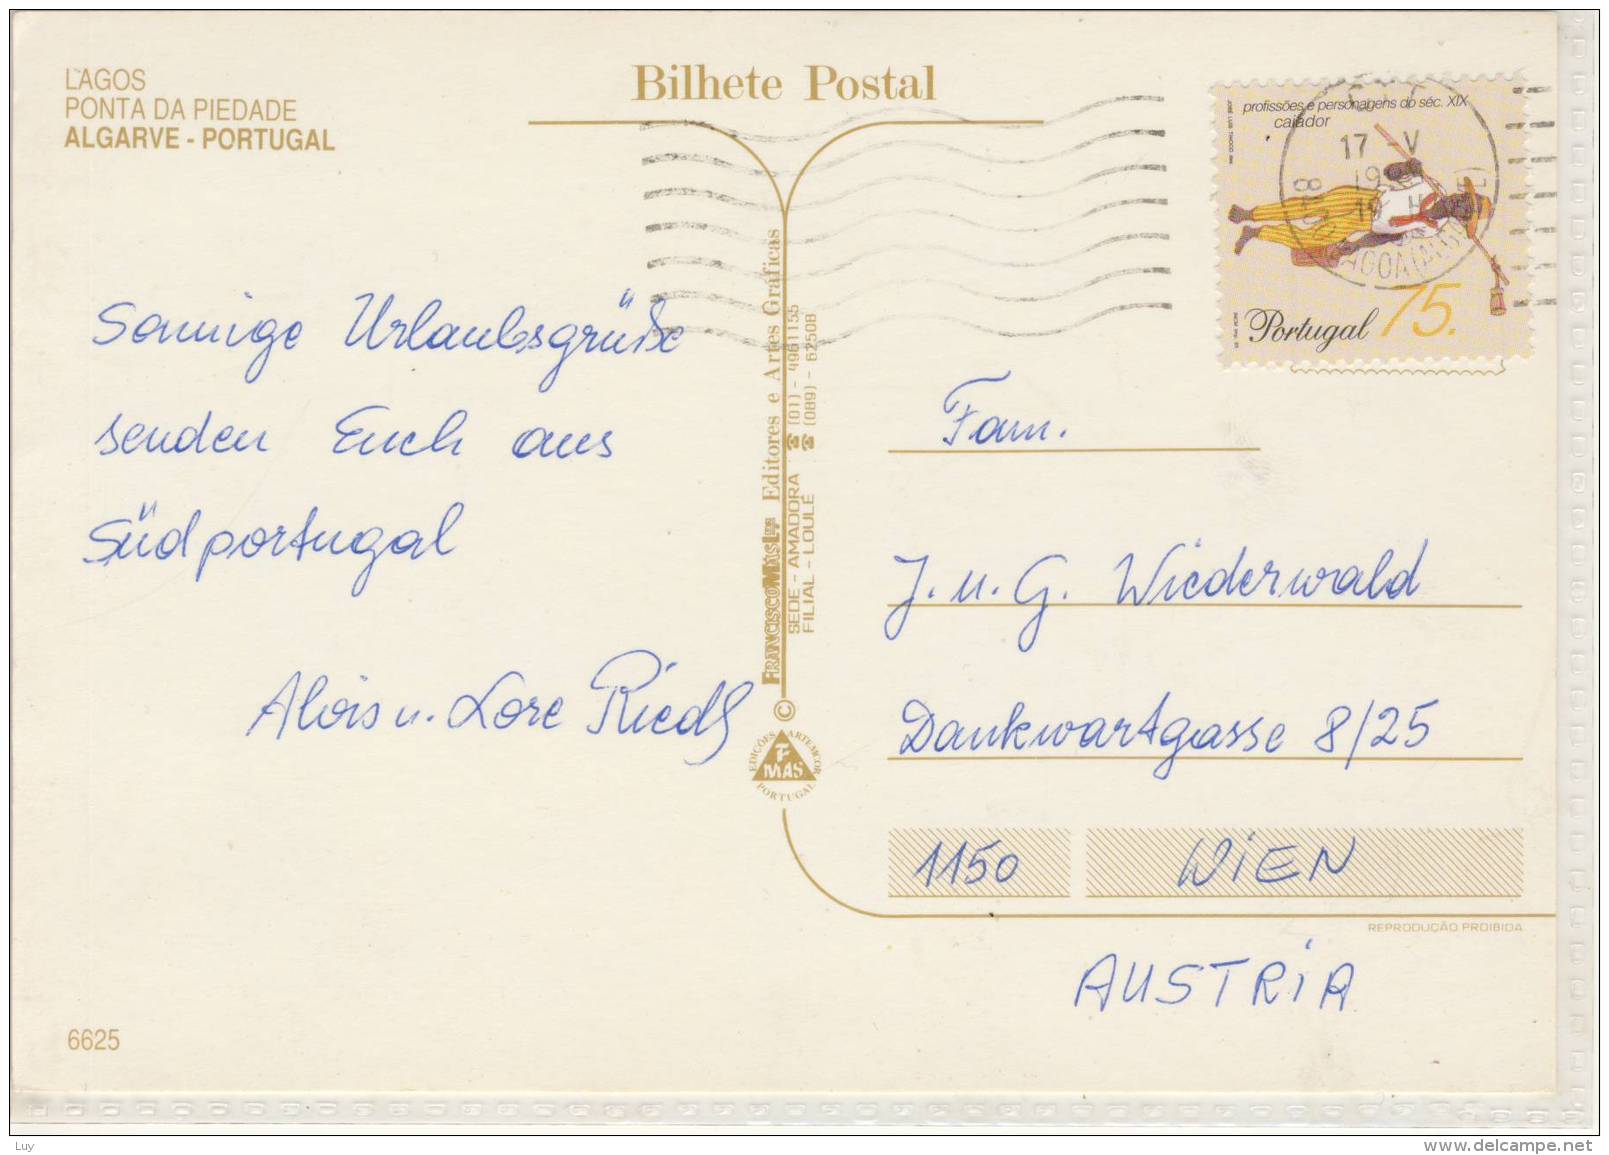 LAGOS
PONTA DA PIEDADE
ALGARVE - PORTUGAL
Bilhete Postal
profissões e personagens do séc. XIX
caiador
17 V
Portugal 75.
Sonnige Urlaubsgrüße
senden Euch aus
Südportugal
Alois u. Lore Riedl
© FRANCISCO MAS Lda Editores e Artes Gráficas
SEDE - AMADORA ☎ (01) - 4961155
FILIAL - LOULÉ ☎ (089) - 62508
EDIÇÕES ARTEMCOR
F
MAS
PORTUGAL
Fam.
J. u. G. Wiederwald
Dankwartgasse 8/25
1150 WIEN
REPRODUÇÃO PROIBIDA
AUSTRIA
6625
Luy
www.delcampe.net